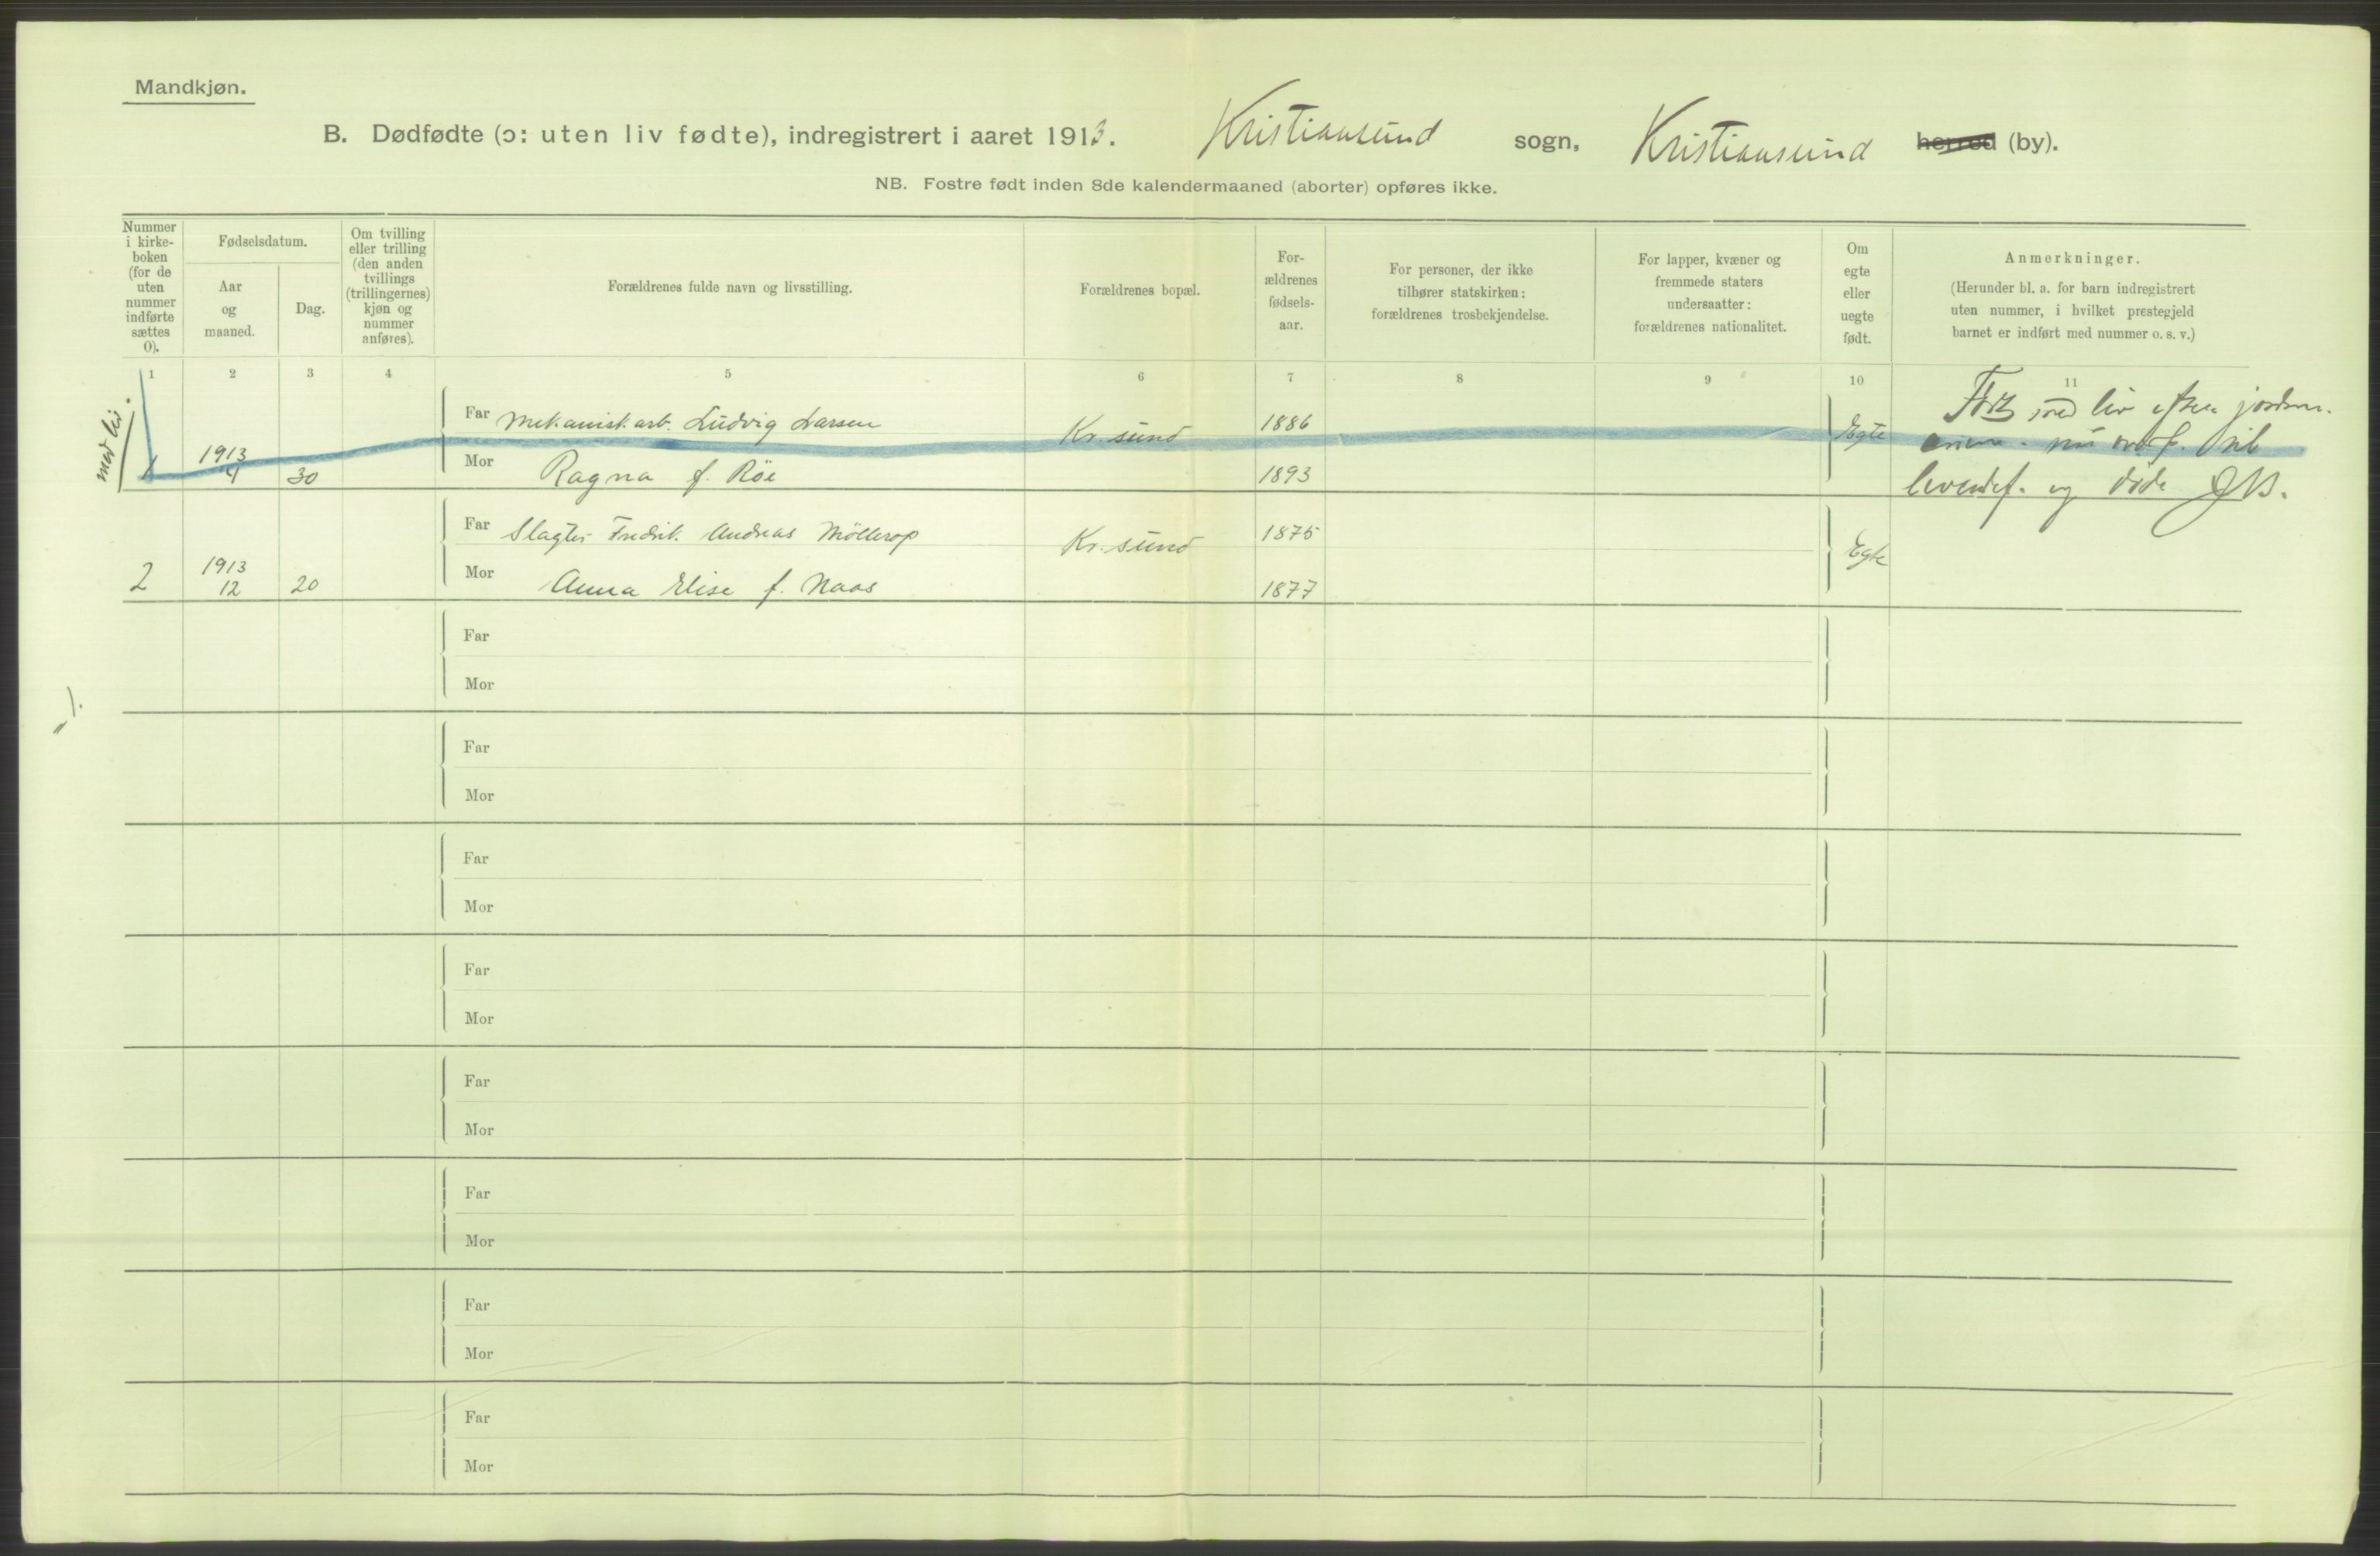 Mandkjøn.
B. Dødfødte (ɔ: uten liv fødte), indregistrert i aaret 1913. Kristiansund sogn, Kristiansund herred (by).
NB. Fostre født inden 8de kalendermaaned (aborter) opføres ikke.
Nummer i kirke-boken (for de uten nummer indførte sættes 0).
Fødselsdatum.
Aar og maaned.
Dag.
Om tvilling eller trilling (den anden tvillings (trillingernes) kjøn og nummer anføres).
Forældrenes fulde navn og livsstilling.
Forældrenes bopæl.
For-ældrenes fødsels-aar.
For personer, der ikke tilhører statskirken: forældrenes trosbekjendelse.
For lapper, kvæner og fremmede staters undersaatter: forældrenes nationalitet.
Om egte eller uegte født.
Anmerkninger.
(Herunder bl. a. for barn indregistrert uten nummer, i hvilket prestegjeld barnet er indført med nummer o. s. v.)
1 2 3 4 5 6 7 8 9 10 11
med liv.
Far Mekanisk arb. Ludvig Larsen Kr.sund 1886 Egte
1 1913 4 30
Mor Ragna f. Röe 1893
med liv efter
levendef. og døde
Far Slagter Fredrik Andreas Möllerop Kr.sund 1875 Egte
2 1913 12 20
Mor Anna Elise f. Naas 1877
Far
Mor
Far
Mor
Far
Mor
Far
Mor
Far
Mor
Far
Mor
Far
Mor
Far
Mor